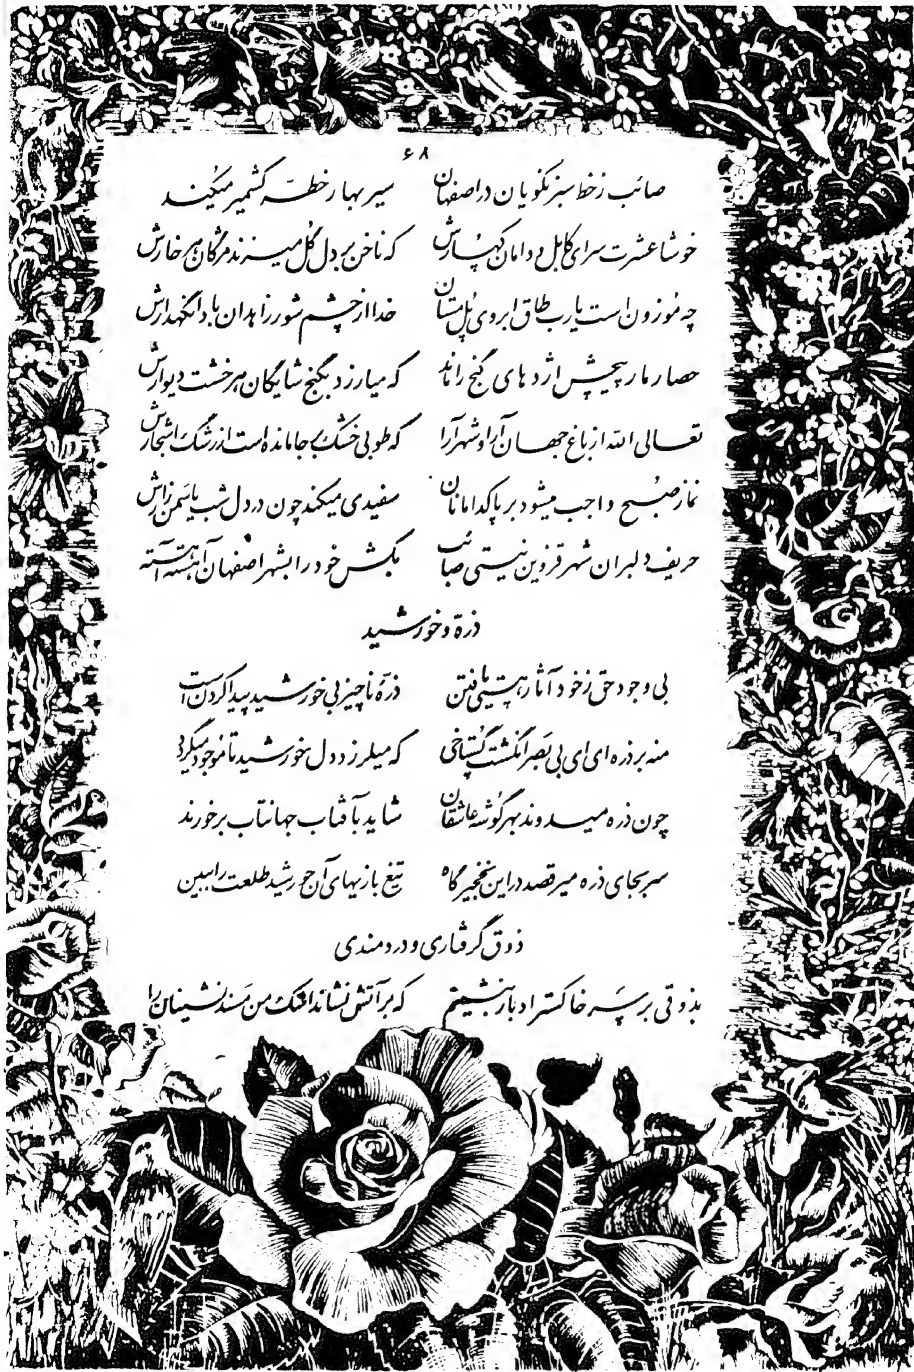 ۶۸
صائب ز خط سبز نکویان در اصفهان سیر بهار خطهٔ کشمیر میکند
خوشا عشرت سرای کابل و دامان کهسارش که ناخن بر دل گل میزند مژگان هر خارش
چه موزون است یارب طاق ابروی پل مستان خدا از چشم شور زاهدان بادا نگهدارش
حصار مار پیچش اژدهای گنج را ماند که میارزد بگنج شایگان هر خشت دیوارش
تعالی الله از باغ جهان آرا و شهر آرا که طوبی خشک بر جا مانده است از رشک اشجارش
نماز صبح واجب میشود بر پاکدامانان سفیدی میکند چون در دل شب یاسمن زارش
حریف دلبران شهر قزوین نیستی صائب بکش خود را بشهر اصفهان آهسته آهسته
ذره و خورشید
بی وجود حق ز خود آثار هستی یافتن ذرهٔ ناچیز بی خورشید پیدا کردن است
منه بر ذره ای ای بی بصر انگشت گستاخی که میلرزد دل خورشید تا موجود میگردد
چون ذره میدوند بهر گوشه عاشقان شاید بآفتاب جهانتاب برخورند
سر بجای ذره میرقصد در این نخجیرگاه تیغ بازیهای آن خورشید طلعت را ببین
ذوق گرفتاری و دردمندی
بذوقی بر سر خاکستر ادبار بنشینم که بر آتش نشاند اشک من مسند نشینان را